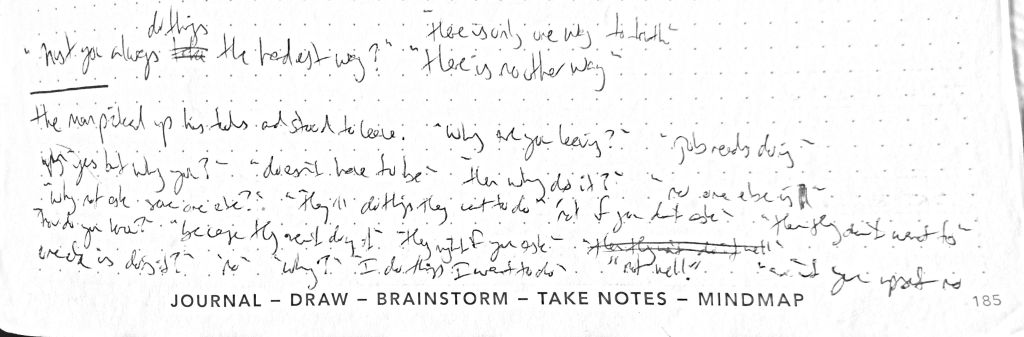 do things
"must you always the hardest way?" "there is only one way to truth"
"there is no other way"
the man picked up his tools and stood to leave. "why are you leaving?" "job needs doing"
"yes but why you?" "doesn't have to be" "then why do it?" "no one else is"
"why not ask someone else?" "they'll do things they want to do" "not if you don't ask" "then they don't want to"
"how do you know?" "because they aren't doing it" "they might if you ask"
is doing it?" "no" "why?" "I do things I want to do" "not well" "aren't you upset no
JOURNAL – DRAW – BRAINSTORM – TAKE NOTES – MINDMAP 185